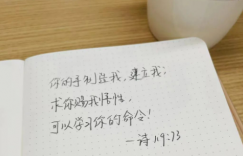 你的手制造我，建立我；
求你赐我悟性，
可以学习你的命令！
—诗 119:73